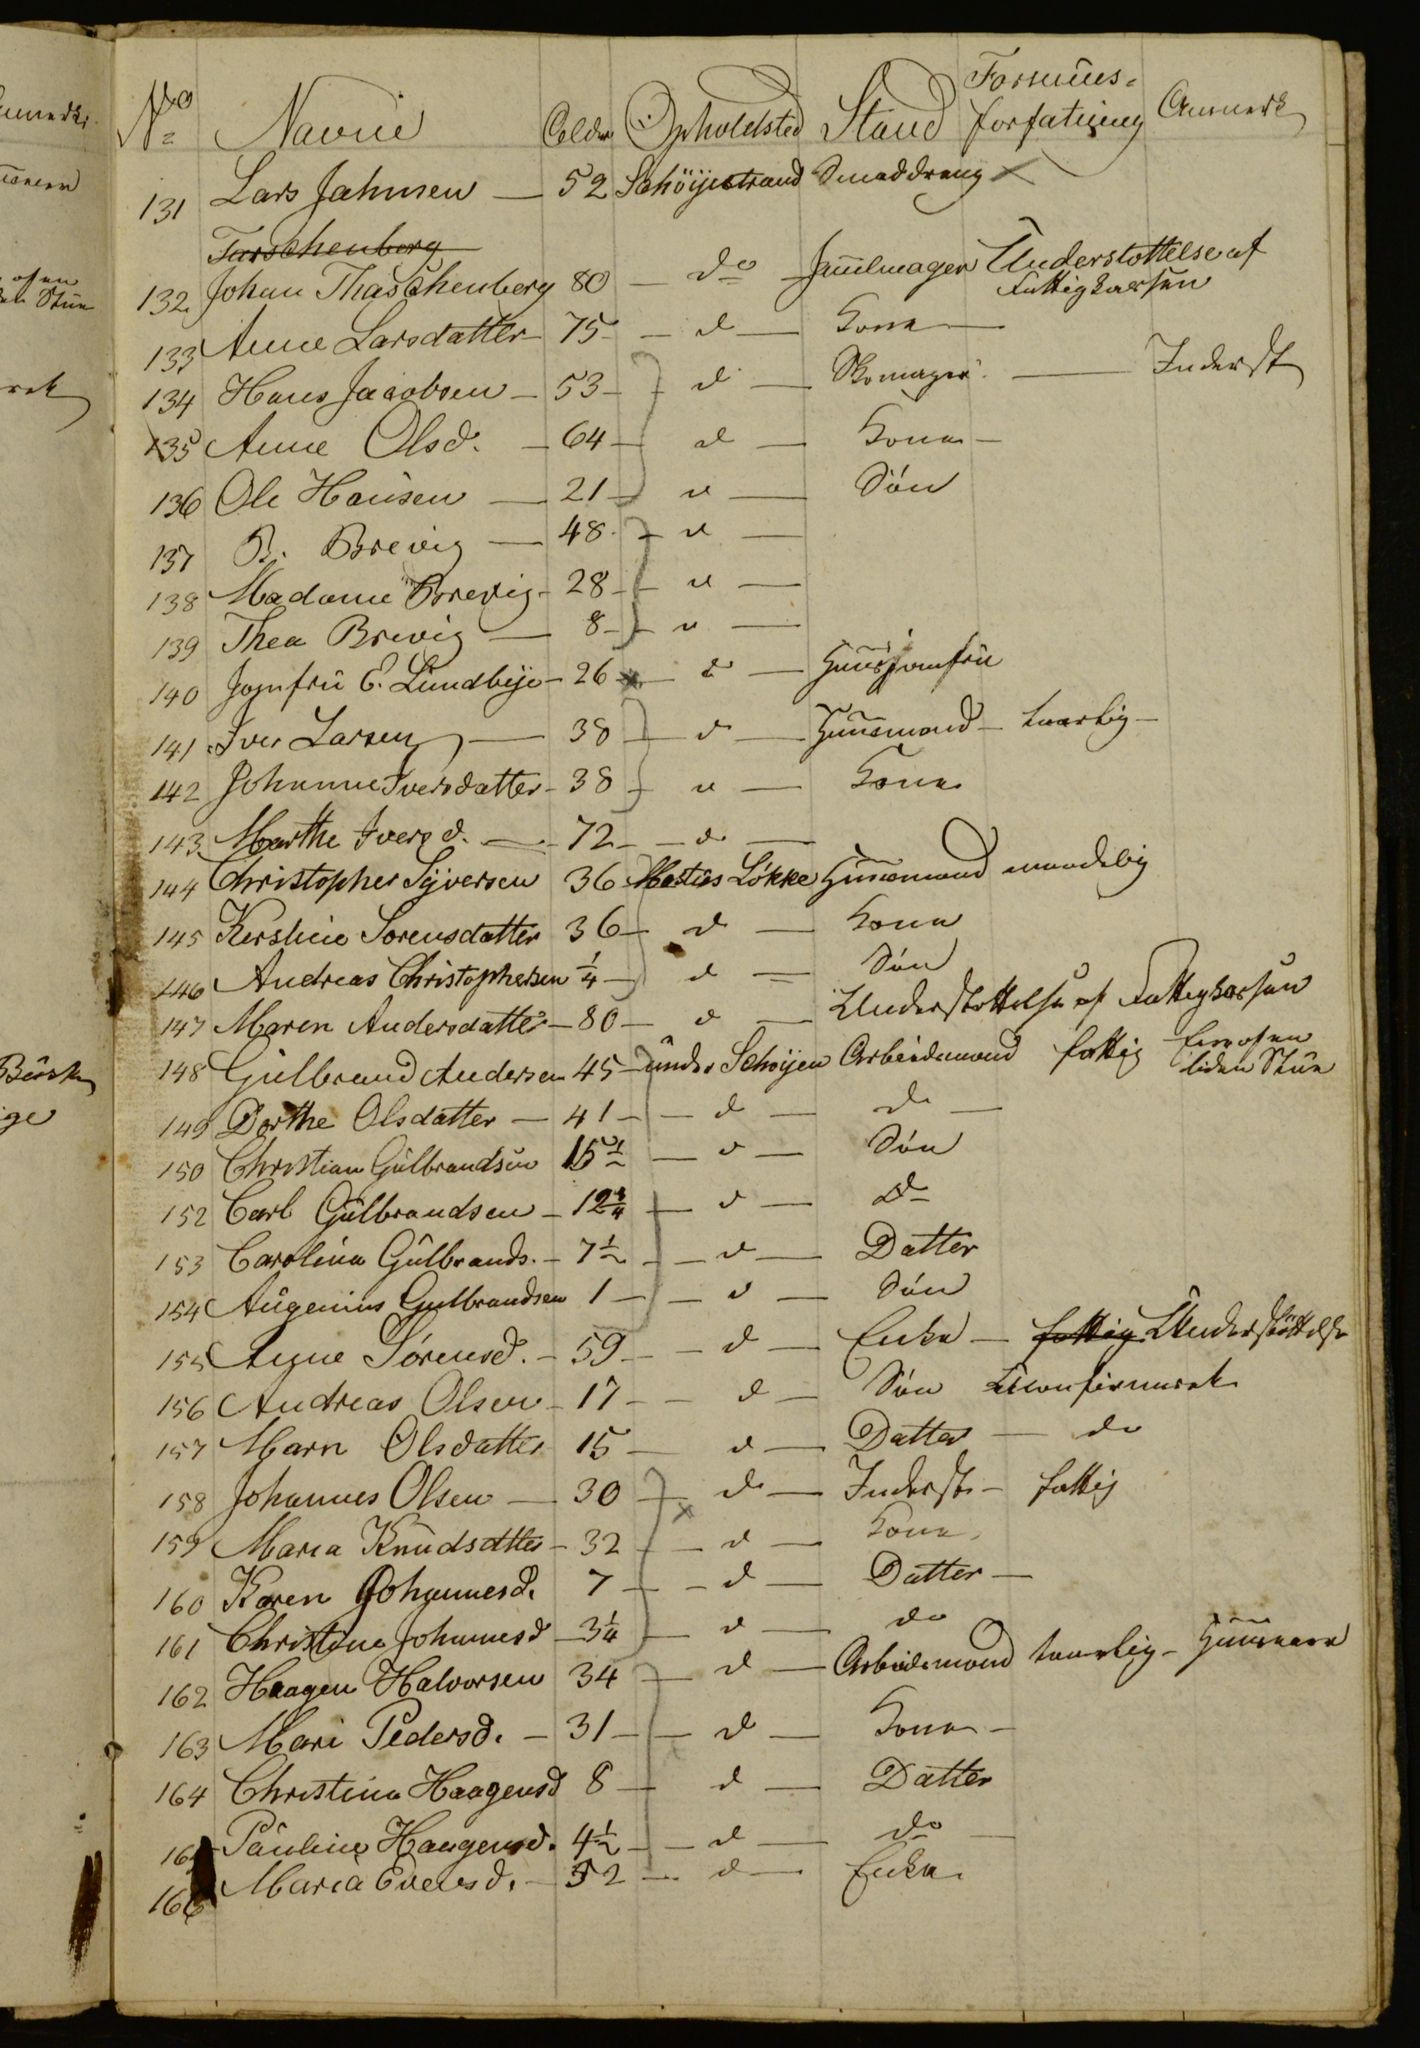 No Navne Alder Opholdsted Stand Formues- forfatning Anmerk
131 Lars Jahnsen — 52 Schöijestrand Smeddreng
Tarschenberg
132 Johan Thaschenberg 80 — do Understøttelse af Fattigkassen
133 Anne Larsdatter — 75 — d — Kone —
134 Hans Jacobsen — 53 — d — Skomager — Inderst
135 Anne Olsd. — 64 — d — Kone —
136 Ole Hansen — 21 — d — Søn
137 B. Brevig — 48 — d —
138 Madame Brevig — 28 — d —
139 Thea Brevig — 8 — d —
140 Jomfru E. Lundbye — 26 — d — Huusjomfru
141 Iver Larsen — 38 — d — Huusmand — taarlig —
142 Johanne Iversdatter — 38 — d — Kone
143 Marthe Iversd. — 72 — d —
144 Christopher Syversen 36 Løkke Huusmand maadelig
145 Kerstine Sorensdatter 36 — d — Kone
146 Andreas Christophersen 1/4 — d — Søn
147 Maren Andersdatter — 80 — d — Understøttelse af Fattigkassen
148 Gulbrand Andersen 45 — under Schøyen Arbeidsmand fattig liden Stue
149 Dorthe Olsdatter — 41 — d — do —
150 Christian Gulbrandsen 15 1/2 — d — Søn
152 Carl Gulbrandsen — 12 3/4 — d — do
153 Carolina Gulbrands. — 7 1/2 — d — Datter
154 Augenius Gulbrandsen 1 — d — Søn
155 Anne Sørensd. — 59 — d — Enke — fattig Understøttelse
156 Andreas Olsen — 17 — d — Søn Uconfirmeret
157 Marn Olsdatter 15 — d — Datter — do
158 Johannes Olsen — 30 — d — Inderst — fattig
159 Maria Knudsdtter — 32 — d — Kone
160 Karen Johannesd. 7 — d — Datter —
161 Christine Johannesd — 3 1/4 — d — do
162 Haagen Halvorsen 34 — d — Arbeidsmand taarlig — Huusmann
163 Mari Pedersd. — 31 — d — Kone —
164 Christina Haagensd 8 — d — Datter
165 Pauline Haagensd. 4 1/2 — d — do —
166 Maria Evensd. — 52 — d — Enke